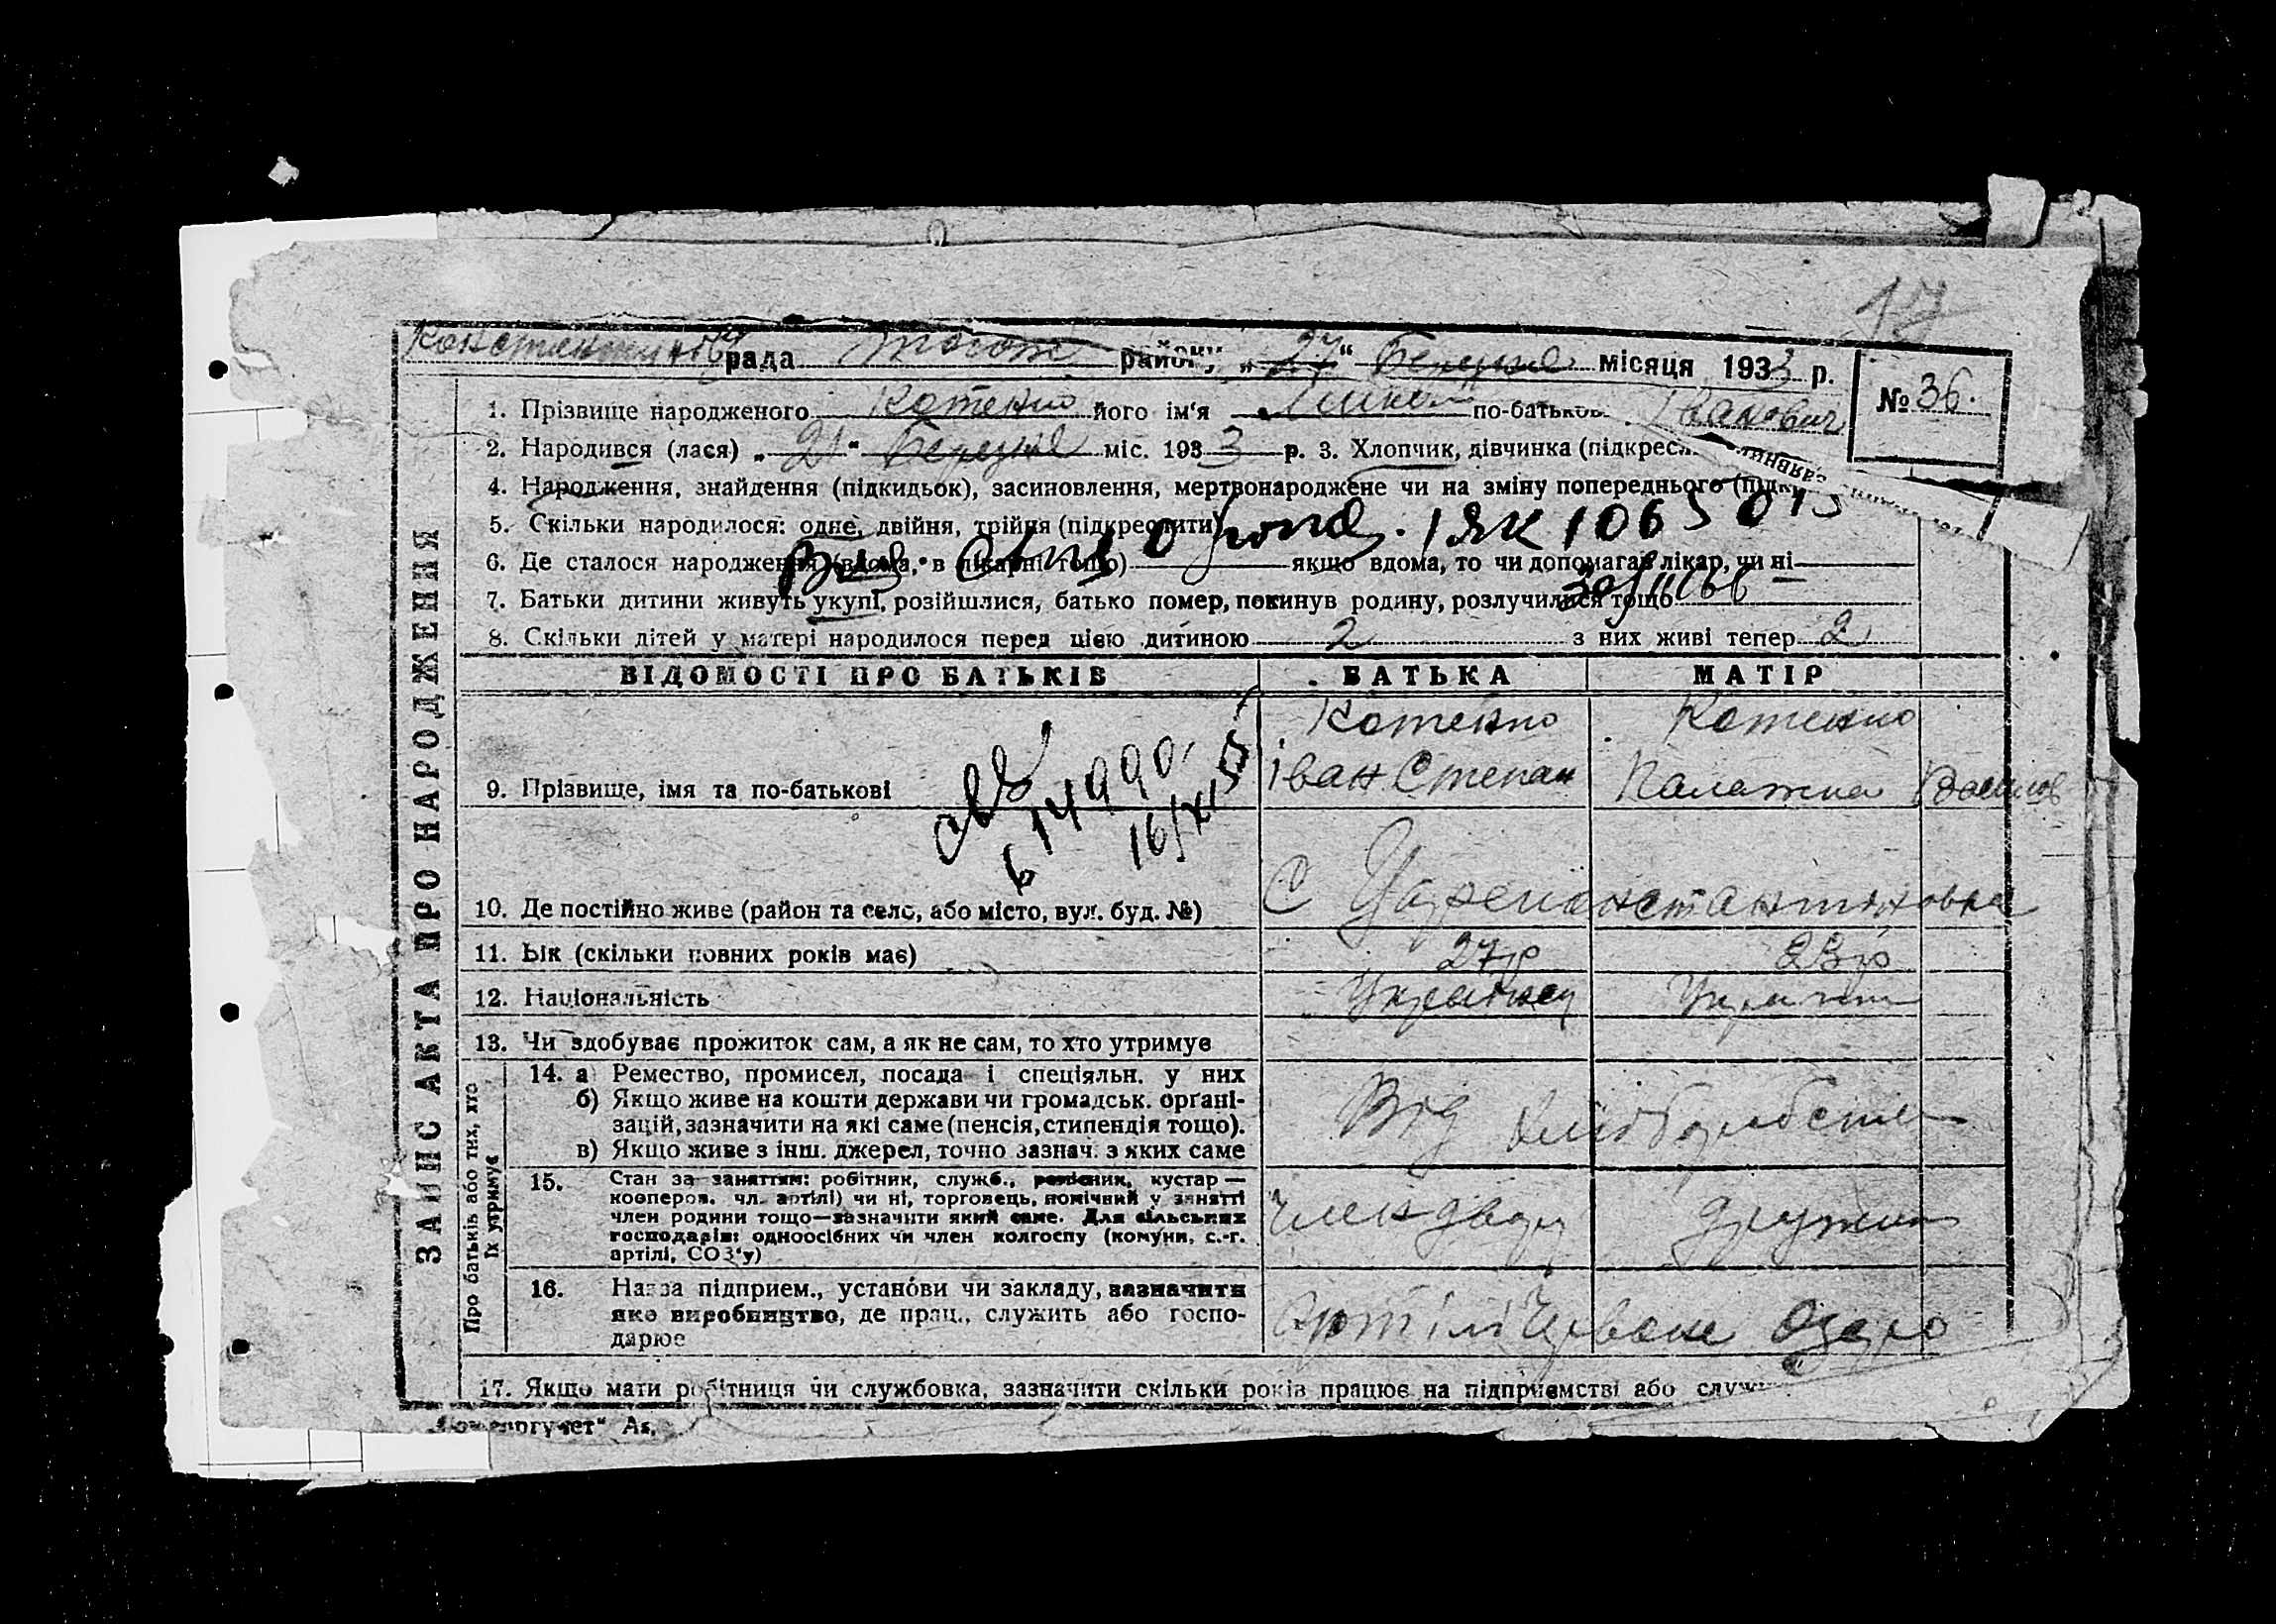 17
рада того ж району, „27" Березня місяця 1933 р.
№ 36.
1. Прізвище народженого Котенко його ім'я по-батьков. Іванович
2. Народився (лася) „21" Березня міс. 1933 р. 3. Хлопчик, дівчинка (підкресл.
4. Народження, знайдення (підкидьок), засиновлення, мертвонароджене чи на зміну попереднього
5. Скільки народилося: одне, двійня, трійня (підкреслити)
6. Де сталося народження (вдома, в лікарні тощо) якщо вдома, то чи допомагав лікар, чи ні
7. Батьки дитини живуть укупі, розійшлися, батько помер, покинув родину, розлучилися тощо
8. Скільки дітей у матері народилося перед цією дитиною 2 з них живі тепер 2
ВІДОМОСТІ ПРО БАТЬКІВ БАТЬКА МАТІР
Котенко Котенко
9. Прізвище, імя та по-батькові Іван Степан Палажка Васил
10. Де постійно живе (район та село, або місто, вул. буд. №) С Цареконстантиновка
11. Вік (скільки повних років має) 27 р 23 р
12. Національність Українец
13. Чи здобуває прожиток сам, а як не сам, то хто утримує
14. а Ремество, промисел, посада і спеціяльн. у них
б) Якщо живе на кошти держави чи громадськ. органі-
зацій, зазначити на які саме (пенсія, стипендія тощо).
в) Якщо живе з інш. джерел, точно зазнач. з яких саме
Від
15. Стан за заняттям: робітник, служб., ремісник, кустар —
кооперов. чл. артілі) чи ні, торговець, помічний у занятті
член родини тощо—зазначити який саме. Для сільських
господарів: одноосібних чи член колгоспу (комуни, с.-г.
артілі, СОЗ'у)
Член двору Дружина
16. Назва підприєм., установи чи закладу, зазначити
яке виробництво, де прац., служить або госпо-
дарює
Артілі Червоне Озеро
17. Якщо мати робітниця чи службовка, зазначити скільки років працює на підприємстві або
ЗАПИС АКТА ПРО НАРОДЖЕННЯ
Про батьків або тих, хто
їх утримує